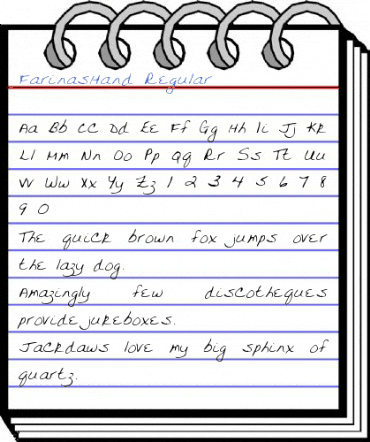 FarinasHand Regular
Aa Bb Cc Dd Ee Ff Gg Hh Ii Jj Kk
Ll Mm Nn Oo Pp Qq Rr Ss Tt Uu
Vv Ww Xx Yy Zz 1 2 3 4 5 6 7 8
9 0
The quick brown fox jumps over
the lazy dog.
Amazingly few discotheques
provide jukeboxes.
Jackdaws love my big sphinx of
quartz.